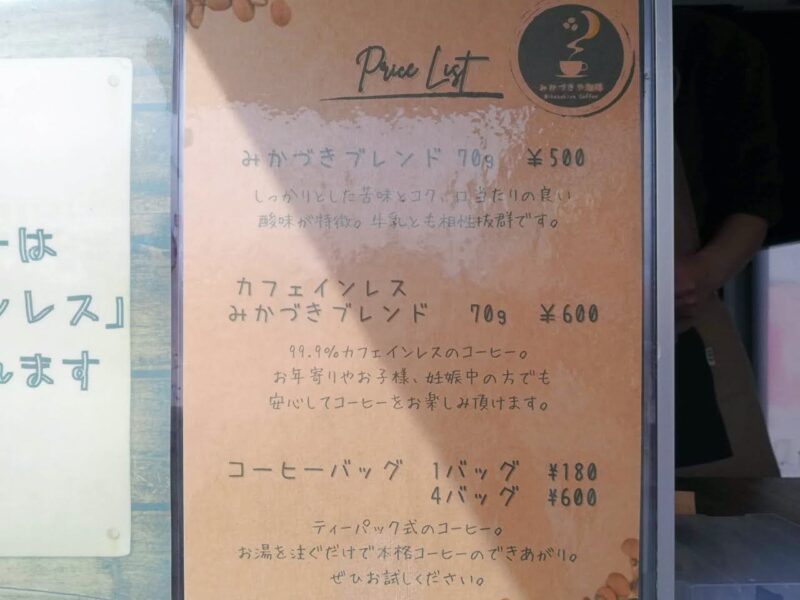 Price List
みかづきや珈琲
Mikazukiya Coffee
みかづきブレンド 70g ¥500
しっかりとした苦味とコク、口当たりの良い
酸味が特徴。牛乳とも相性抜群です。
カフェインレス
みかづきブレンド 70g ¥600
99.9%カフェインレスのコーヒー。
お年寄りやお子様、妊娠中の方でも
安心してコーヒーをお楽しみ頂けます。
コーヒーバッグ 1バッグ ¥180
4バッグ ¥600
ティーパック式のコーヒー。
お湯を注ぐだけで本格コーヒーのできあがり。
ぜひお試しください。
ーは
ンレス」
れます